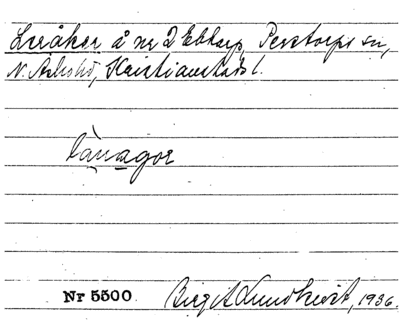 Leråker å nr 2 Ebbarp, Perstorps sn,
N. Åsbo hd, Kristianstads l.
lànagor
Nr 5500 Birgit Lundkvist, 1936.